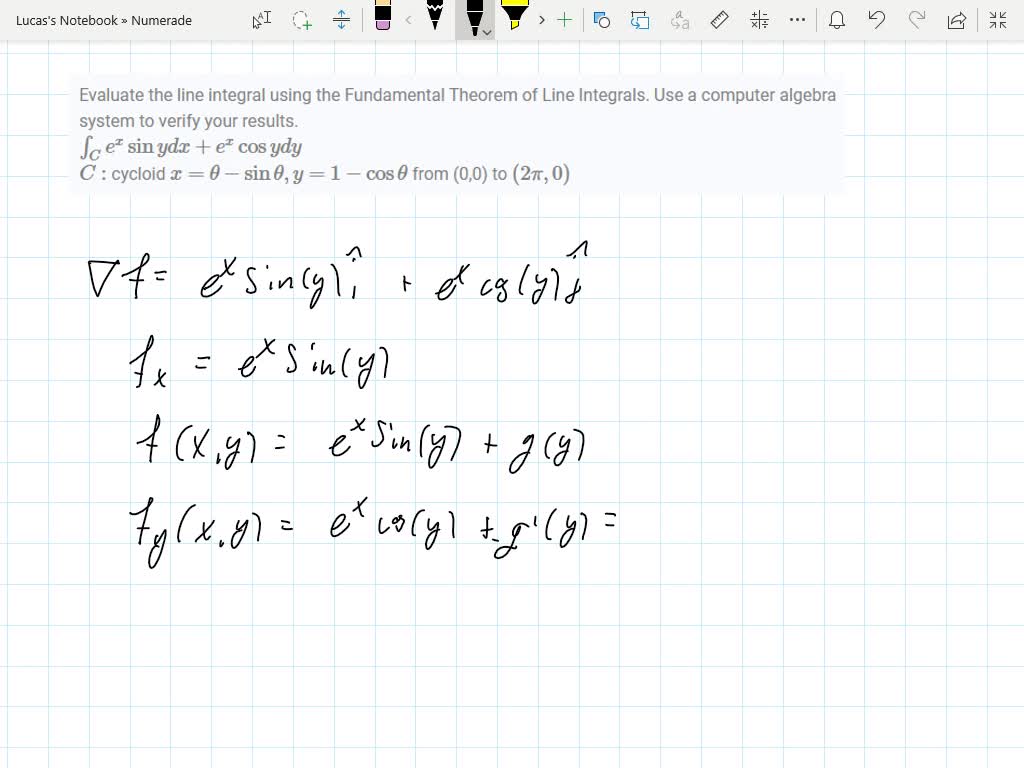 Lucas's Notebook » Numerade
Evaluate the line integral using the Fundamental Theorem of Line Integrals. Use a computer algebra
system to verify your results.
∫_C e^x sin ydx + e^x cos ydy
C : cycloid x = θ − sin θ, y = 1 − cos θ from (0,0) to (2π, 0)
∇f = e^x sin(y) î + e^x cos(y) ĵ
f_x = e^x sin(y)
f(x,y) = e^x sin(y) + g(y)
f_y(x,y) = e^x cos(y) + g'(y) =